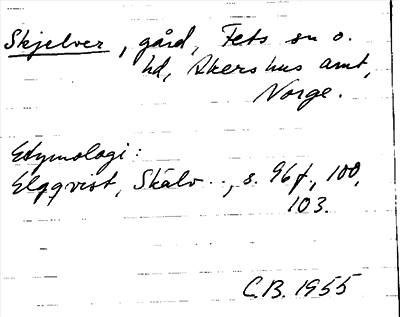 Skjelver, gård, Fets sn o.
hd, Akershus amt,
Norge.
Etymologi:
Elgqvist, Skälv.., s. 96f, 100,
103.
C.B. 1955